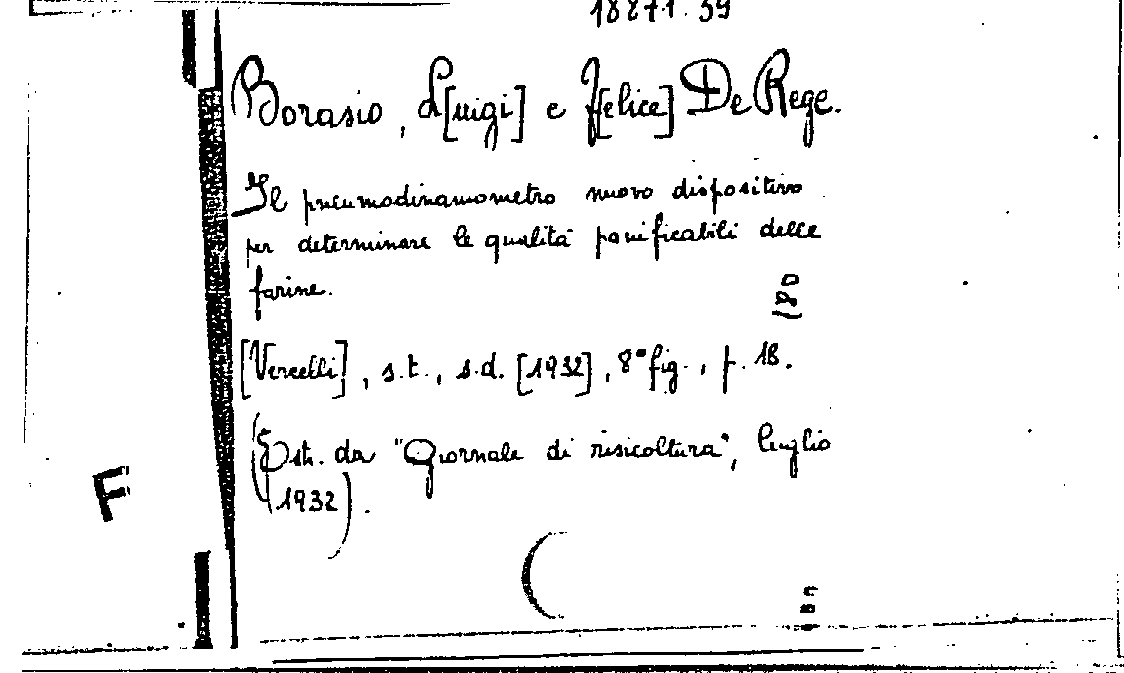 18871.59
Borasio, L[uigi] e F[elice] De Rege.
Il pneumodinamometro nuovo dispositivo
per determinare le qualità panificabili delle
farine.
180
[Vercelli], s.t., s.d. [1932], 8° fig., p. 18.
(Estr. da "Giornale di risicoltura", luglio
1932).
F